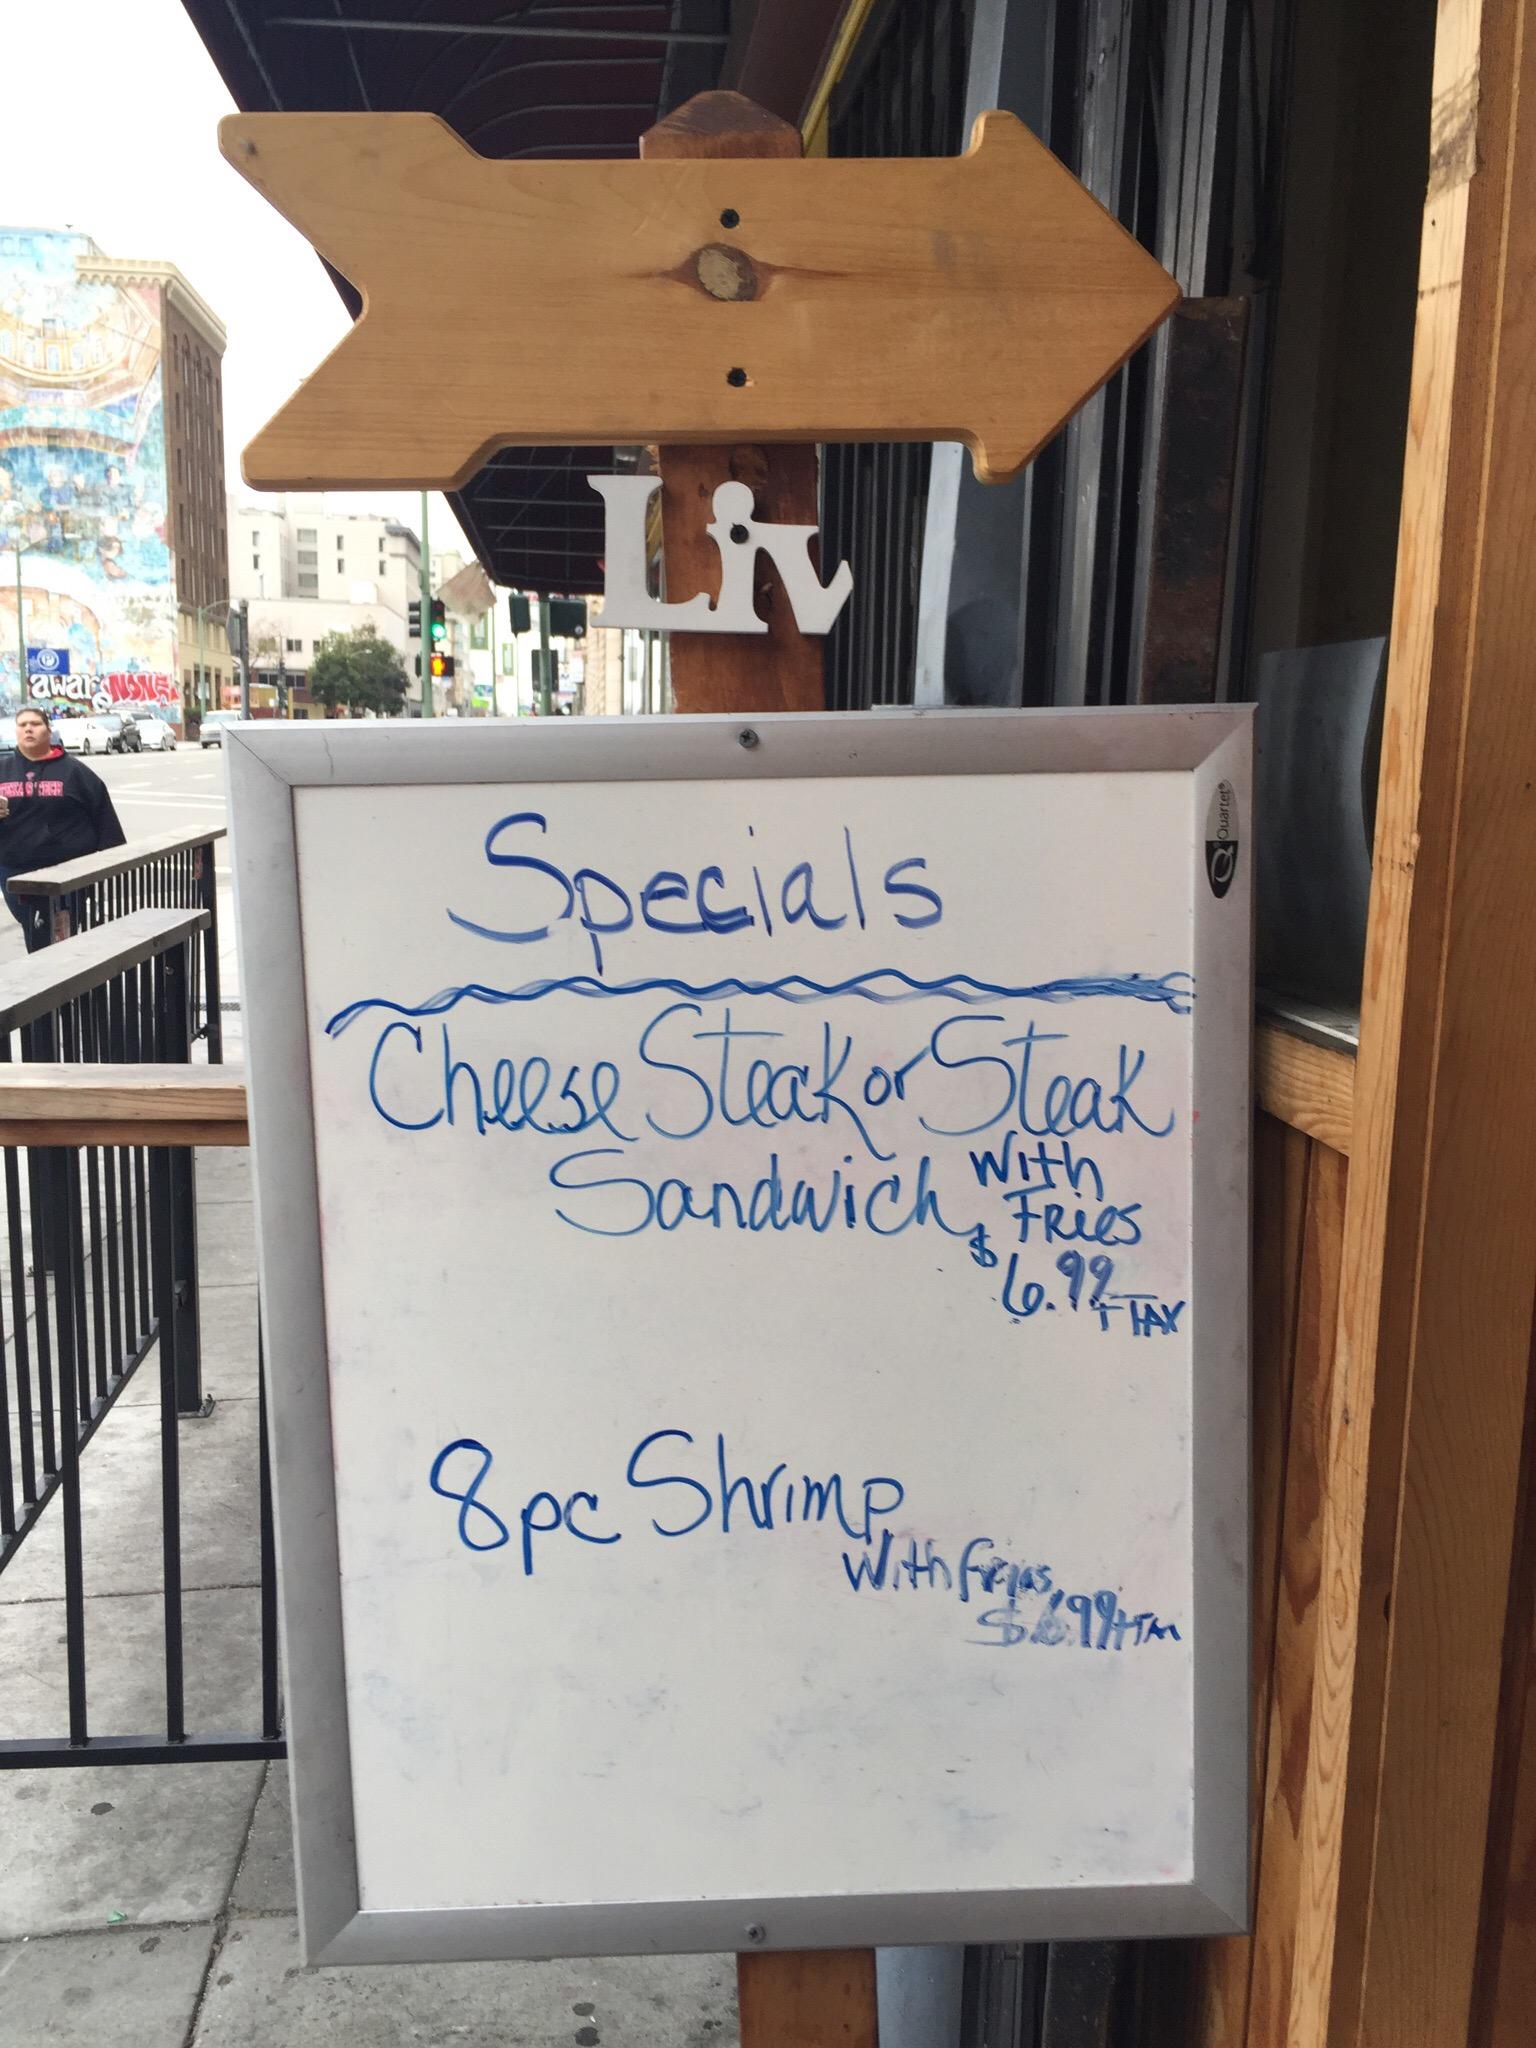 Liv
Quartet®
Specials
Cheese Steak or Steak
Sandwich With
Fries
$6.99
+ TAX
8pc Shrimp
With fries
$6.99 + Tax
awar NONE